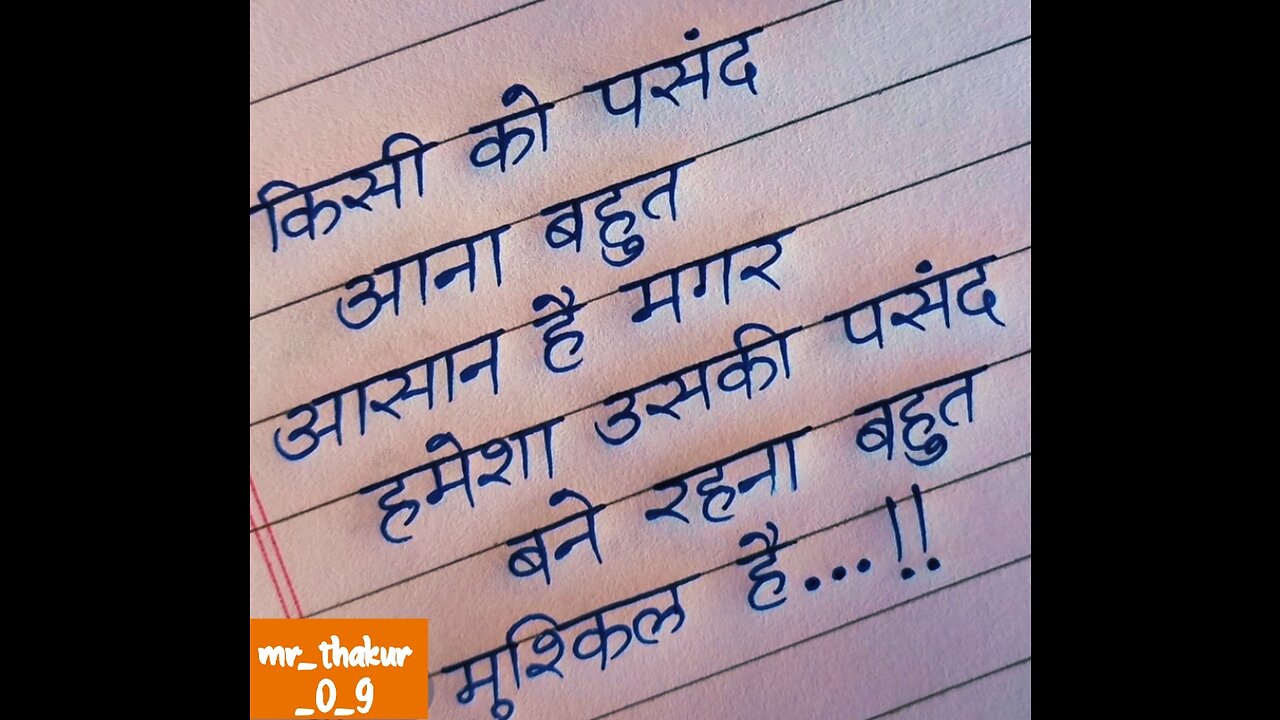 किसी को पसंद
आना बहुत
आसान है मगर
हमेशा उसकी पसंद
बने रहना बहुत
मुश्किल है...!!
mr_thakur
_0_9